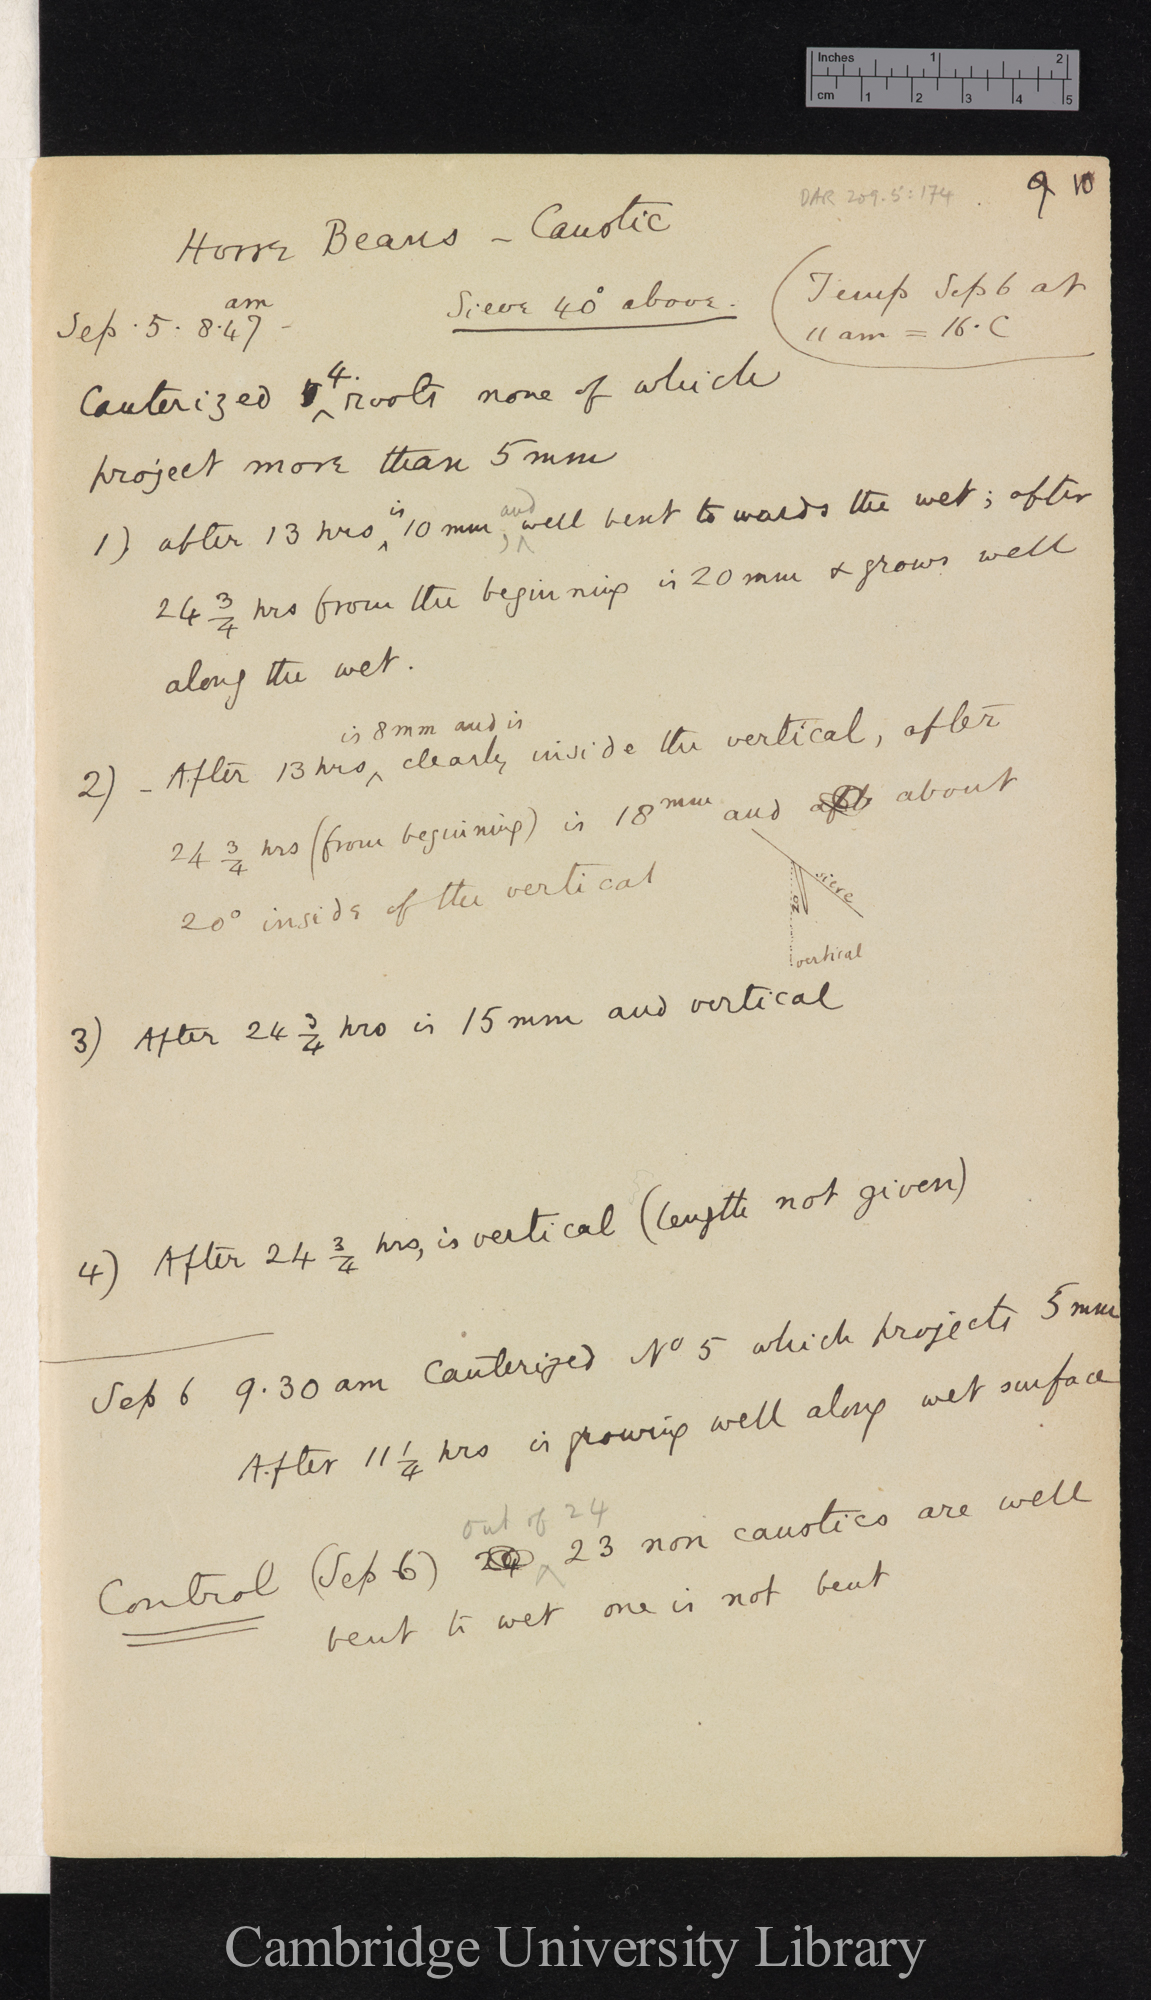 Inches 1 2
cm 1 2 3 4 5
DAR 209.5:174
9 10
Horse Beans - Caustic
Sep. 5. 8.47 am -
Sieve 40° above.
(Temp Sep 6 at
11 am = 16.C
Cauterized 5 4. roots none of which
project more than 5 mm
1) after 13 hrs, is 10 mm, and well bent towards the wet; after
24 3/4 hrs from the beginning is 20 mm & grows well
along the wet.
2) - After 13 hrs is 8 mm and is clearly inside the vertical, after
24 3/4 hrs (from beginning) is 18 mm and about
20° inside of the vertical
sieve
20°
vertical
3) After 24 3/4 hrs is 15 mm and vertical
4) After 24 3/4 hrs, is vertical (length not given)
Sep 6 9.30 am Cauterized No 5 which projects 5 mm
After 11 1/4 hrs is growing well along wet surface
Control (Sep 6) out of 24 23 non caustics are well
bent to wet one is not bent
Cambridge University Library